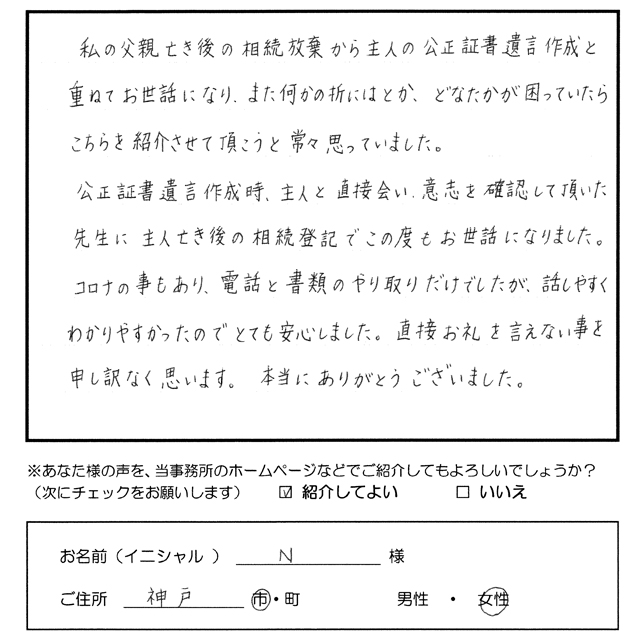 私の父親亡き後の相続放棄から主人の公正証書遺言作成と
重ねてお世話になり、また何かの折にはとか、どなたかが困っていたら
こちらを紹介させて頂こうと常々思っていました。
公正証書遺言作成時、主人と直接会い、意志を確認して頂いた
先生に主人亡き後の相続登記でこの度もお世話になりました。
コロナの事もあり、電話と書類のやり取りだけでしたが、話しやすく
わかりやすかったのでとても安心しました。直接お礼を言えない事を
申し訳なく思います。 本当にありがとうございました。
※あなた様の声を、当事務所のホームページなどでご紹介してもよろしいでしょうか？
（次にチェックをお願いします） ☑ 紹介してよい □ いいえ
お名前（イニシャル ） N 様
ご住所 神戸 市・町 男性 ・ 女性